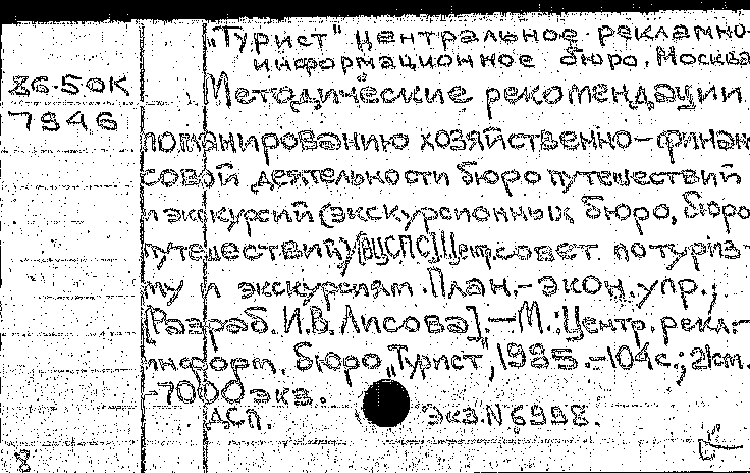 „Турист" центральное рекламно-
информационное бюро. Москва
86-50К
Методические рекомендации
7946
планированию хозяйственно-финан
совой деятельности бюро путешествий
и экскурсий (экскурсионных бюро, бюро
путешествий)/ВЦСПС]Центр.совет по туриз-
му и экскурсиям. План.-экон. упр.;
[Разраб. И.В. Лисова].—М.:Центр. рекл.-
информ. бюро „Турист", 1985.-104с.; 21см.
-7000 экз.
ДСП. Экз.N 6998.
8